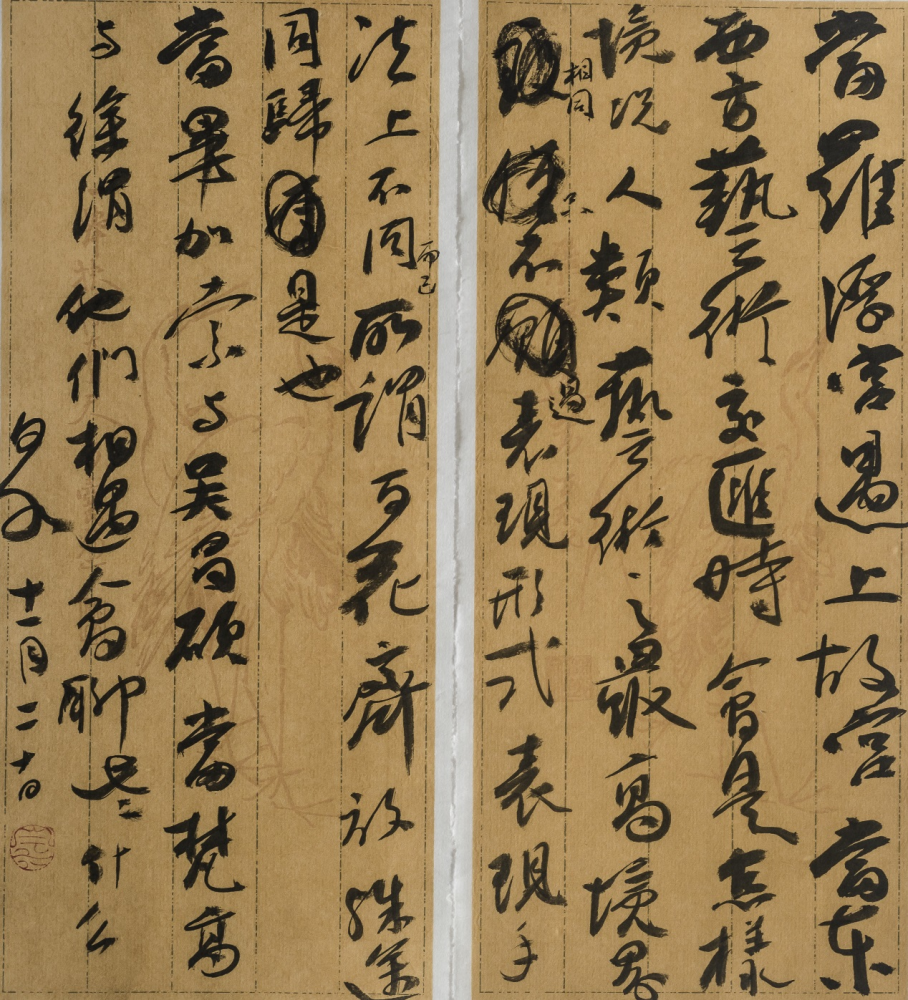 當羅浮宮遇上故宮當東
西方藝術交匯時會是怎樣
境況人類藝術之最高境界
相同
不過表現形式表現手
法上不同而已所謂百花齊放殊途
同歸是也
當畢加索与吴昌碩當梵高
与徐渭他們相遇會聊些什么
十一月二十日